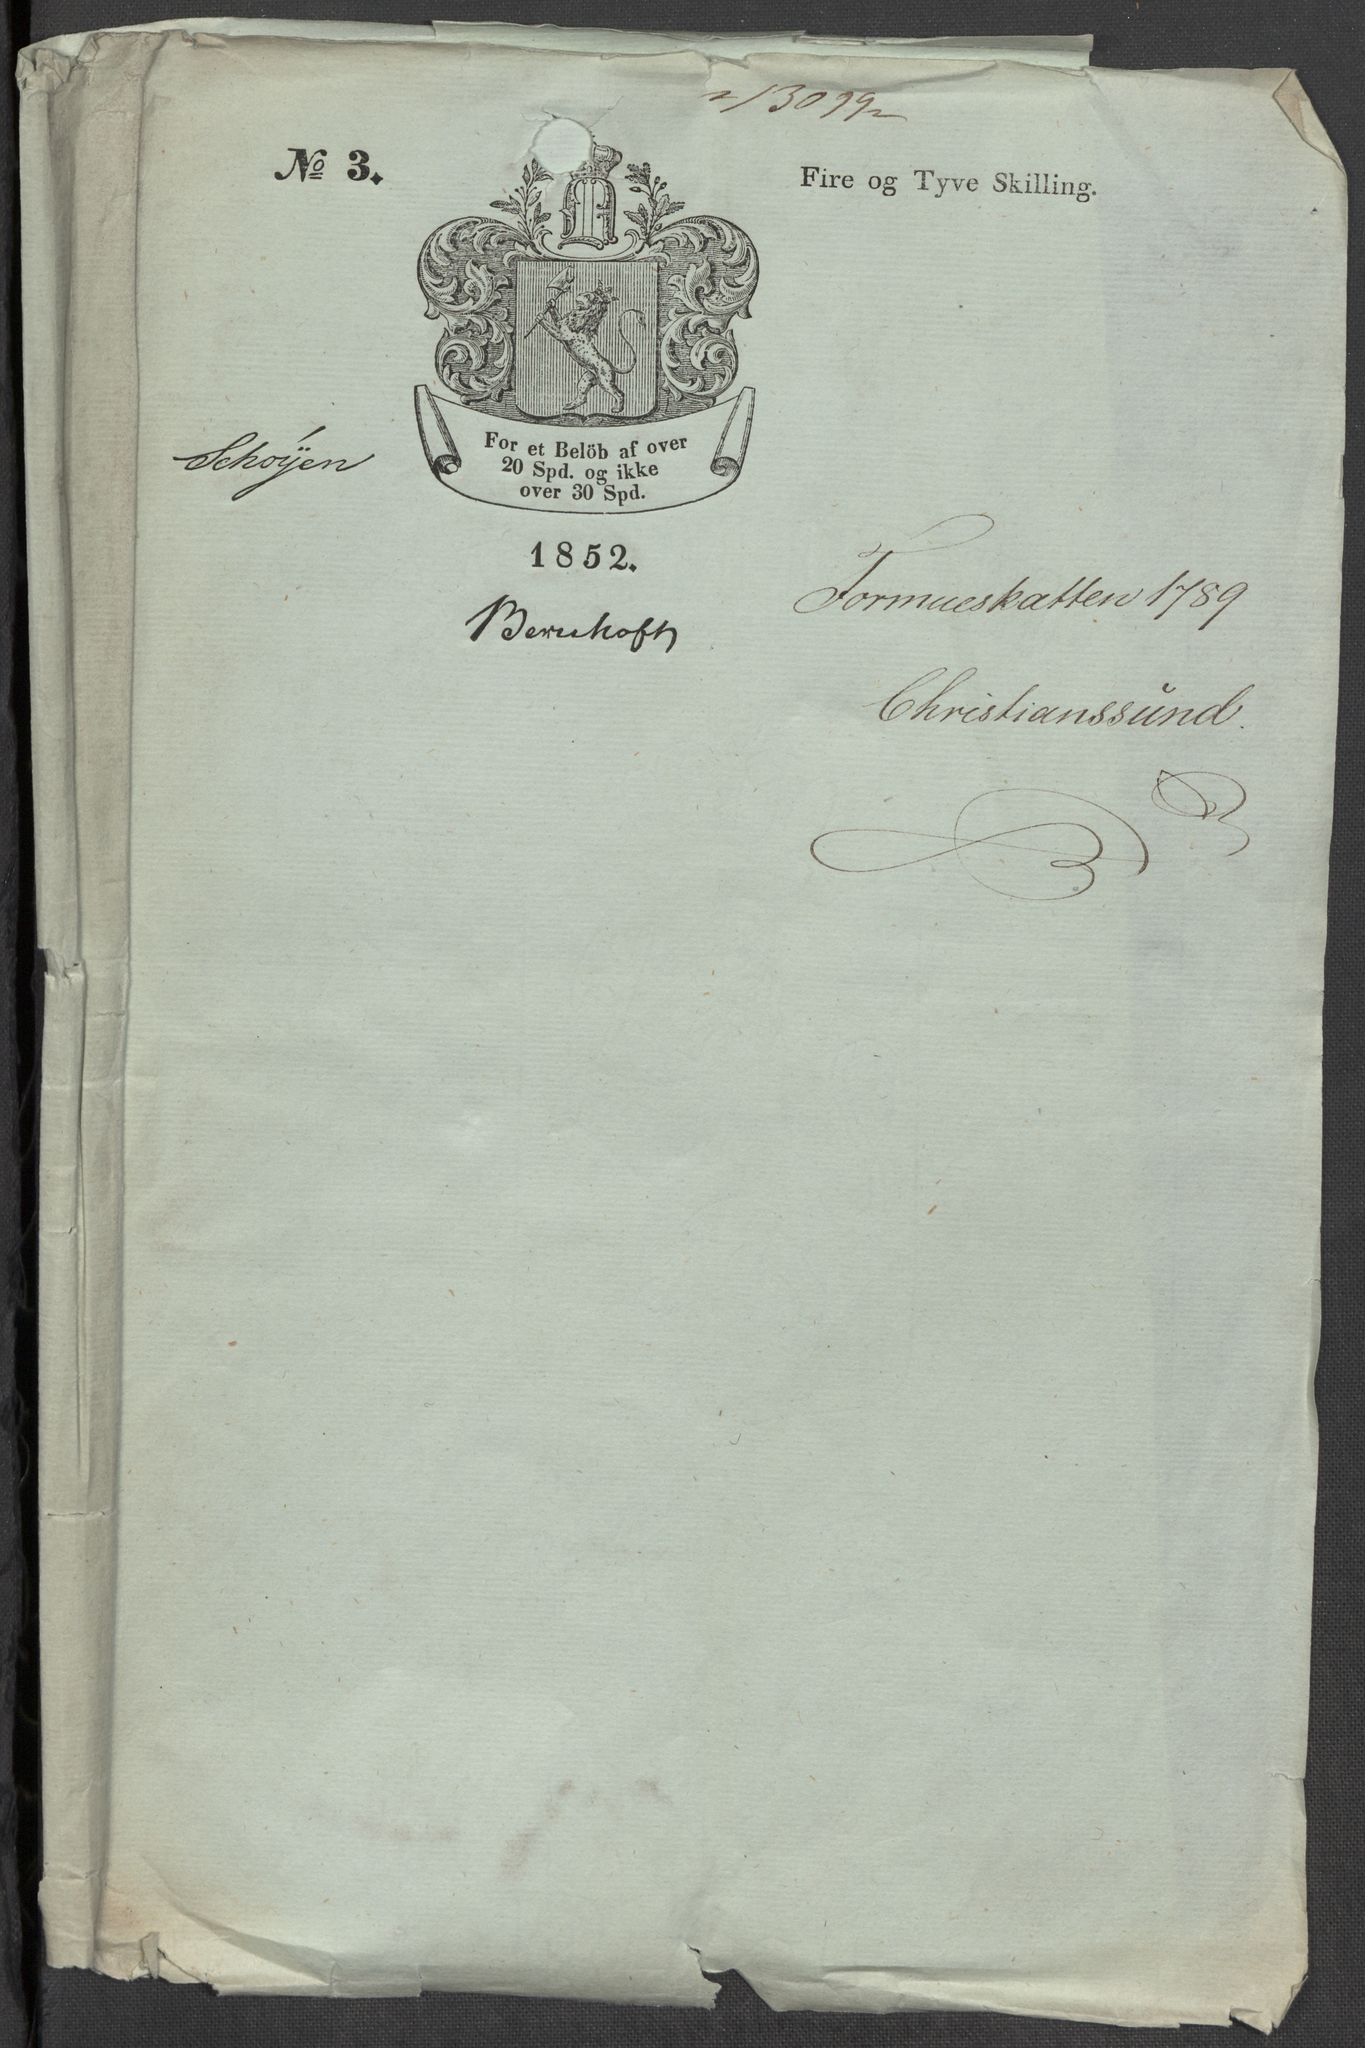 13099
No 3.
Fire og Tyve Skilling.
For et Belöb af over
20 Spd. og ikke
over 30 Spd.
Schöÿen
1852.
Bernhoft
Formueskatten 1789
Christianssund.